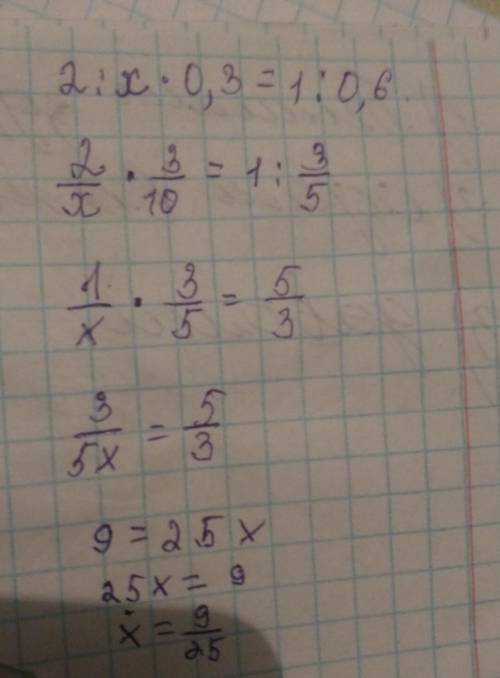 2 : x · 0,3 = 1 : 0,6.
2/x · 3/10 = 1 : 3/5
1/x · 3/5 = 5/3
3/5x = 5/3
9 = 25x
25x = 9
x = 9/25